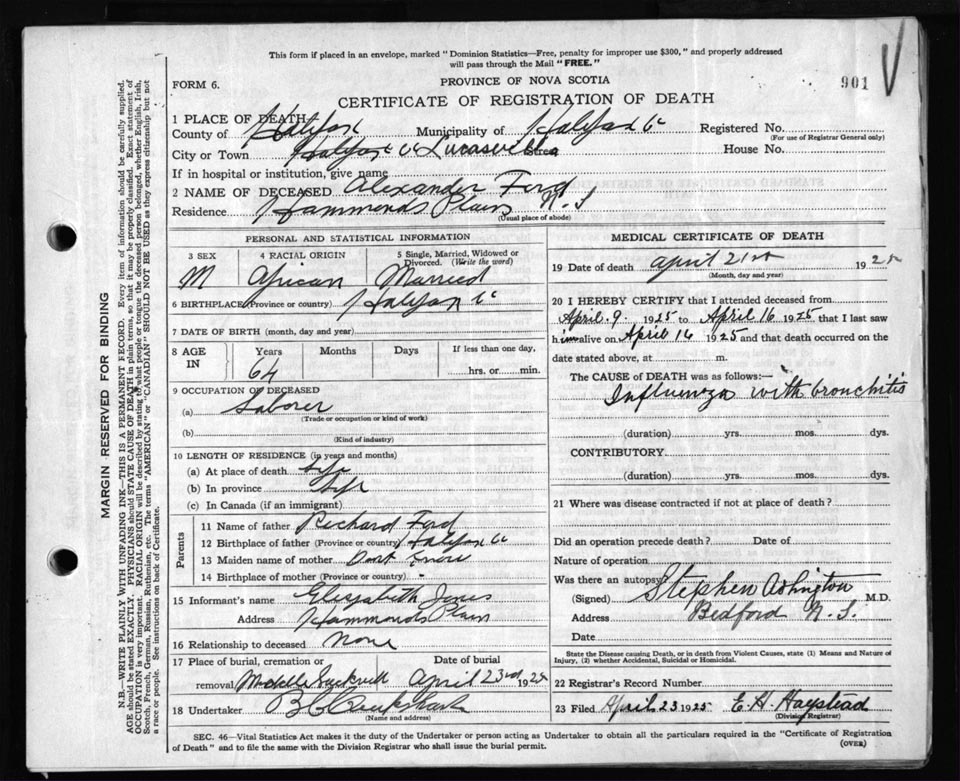 This form if placed in an envelope, marked "Dominion Statistics—Free, penalty for improper use $300," and properly addressed
will pass through the Mail "FREE."
FORM 6.
PROVINCE OF NOVA SCOTIA
901
CERTIFICATE OF REGISTRATION OF DEATH
1 PLACE OF DEATH
County of Halifax Municipality of Halifax Co Registered No.
(For use of Registrar General only)
City or Town Halifax Co Lucasville Street House No.
If in hospital or institution, give name
2 NAME OF DECEASED Alexander Ford
Residence Hammonds Plain N.S
(Usual place of abode)
PERSONAL AND STATISTICAL INFORMATION
3 SEX 4 RACIAL ORIGIN 5 Single, Married, Widowed or
Divorced. (Write the word)
M African Married
6 BIRTHPLACE (Province or country) Halifax Co
7 DATE OF BIRTH (month, day and year)
8 AGE IN Years Months Days If less than one day,
64 hrs. or min.
9 OCCUPATION OF DECEASED
(a) Laborer
(Trade or occupation or kind of work)
(b)
(Kind of industry)
10 LENGTH OF RESIDENCE (in years and months)
(a) At place of death life
(b) In province life
(c) In Canada (if an immigrant)
Parents
11 Name of father Richard Ford
12 Birthplace of father (Province or country) Halifax Co
13 Maiden name of mother Dont Know
14 Birthplace of mother (Province or country)
15 Informant's name Elizabeth Jones
Address Hammonds Plain
16 Relationship to deceased None
17 Place of burial, cremation or Date of burial
removal Sackville April 23rd 1925
18 Undertaker
(Name and address)
MEDICAL CERTIFICATE OF DEATH
19 Date of death april 21st 1925
(Month, day and year)
20 I HEREBY CERTIFY that I attended deceased from
April 9 1925 to April 16 1925 that I last saw
him alive on April 16 1925 and that death occurred on the
date stated above, at m.
The CAUSE of DEATH was as follows:—
Influenza with bronchitis
(duration) yrs. mos. dys.
CONTRIBUTORY
(duration) yrs. mos. dys.
21 Where was disease contracted if not at place of death?
Did an operation precede death? Date of
Nature of operation
Was there an autopsy
(Signed) Stephen M.D.
Address Bedford N.S.
Date
State the Disease causing Death, or in death from Violent Causes, state (1) Means and Nature of
Injury, (2) whether Accidental, Suicidal or Homicidal.
22 Registrar's Record Number
23 Filed April 23 1925 E. H. Haystead
(Division Registrar)
SEC. 46—Vital Statistics Act makes it the duty of the Undertaker or person acting as Undertaker to obtain all the particulars required in the "Certificate of Registration
of Death" and to file the same with the Division Registrar who shall issue the burial permit.
(OVER)
MARGIN RESERVED FOR BINDING
N.B.—WRITE PLAINLY WITH UNFADING INK—THIS IS A PERMANENT RECORD. Every item of information should be carefully supplied.
AGE should be stated EXACTLY. PHYSICIANS should STATE CAUSE OF DEATH in plain terms, so that it may be properly classified. Exact statement of
OCCUPATION is very important. RACIAL ORIGIN will be described by stating to what people or tongue the deceased person belonged, whether English, Irish,
Scotch, French, German, Russian, Ruthenian, etc. The terms "AMERICAN" or "CANADIAN" SHOULD NOT BE USED as they express citizenship but not
a race or people. See instructions on back of Certificate.